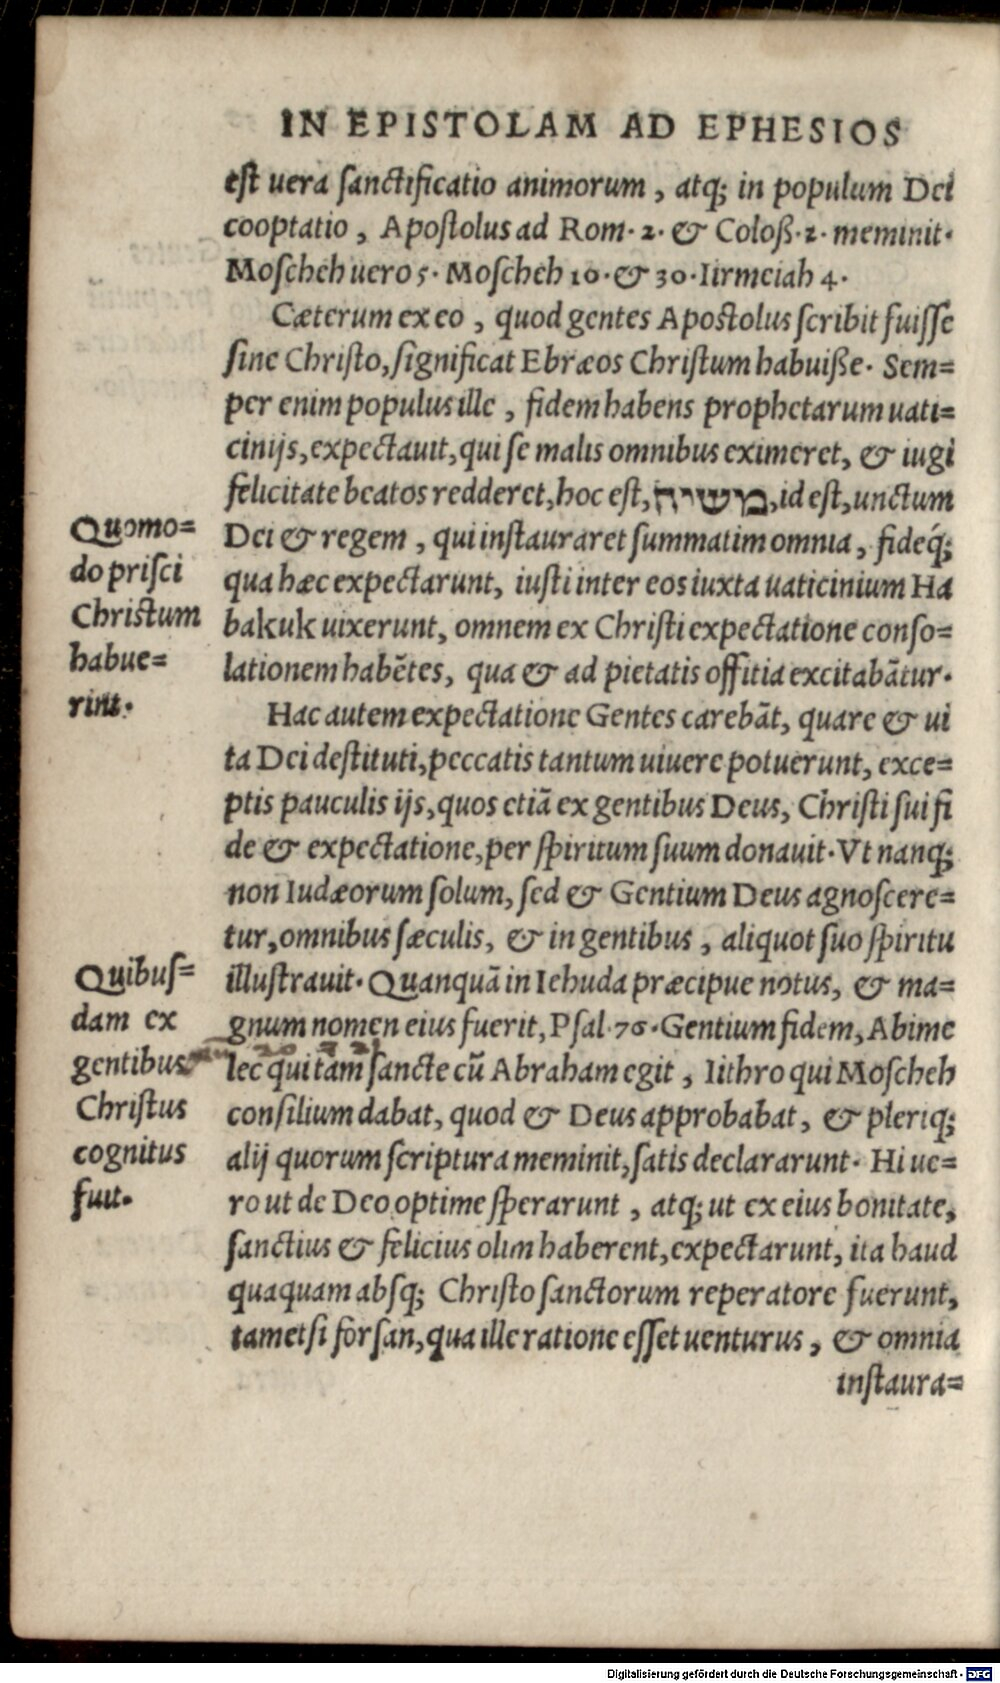 IN EPISTOLAM AD EPHESIOS
est uera sanctificatio animorum, atq; in populum Dei
cooptatio, Apostolus ad Rom. 2. & Coloß. 2. meminit.
Moscheh uero 5. Moscheh 10. & 30. Iirmeiah 4.
Cæterum ex eo, quod gentes Apostolus scribit fuisse
sine Christo, significat Ebræos Christum habuiße. Sem=
per enim populus ille, fidem habens prophetarum uati=
cinijs, expectauit, qui se malis omnibus eximeret, & iugi
felicitate beatos redderet, hoc est, משיח, id est, unctum
Dei & regem, qui instauraret summatim omnia, fideq́;
qua hæc expectarunt, iusti inter eos iuxta uaticinium Ha
bakuk uixerunt, omnem ex Christi expectatione conso=
lationem habẽtes, qua & ad pietatis offitia excitabãtur.
Hac autem expectatione Gentes carebãt, quare & ui
ta Dei destituti, peccatis tantum uiuere potuerunt, exce=
ptis pauculis ijs, quos etiã ex gentibus Deus, Christi sui fi
de & expectatione, per spiritum suum donauit. Vt nanq;
non Iudæorum solum, sed & Gentium Deus agnoscere=
tur, omnibus sæculis, & in gentibus, aliquot suo spiritu
illustrauit. Quanquã in Iehuda præcipue notus, & ma=
gnum nomen eius fuerit, Psal. 76. Gentium fidem, Abime
lec qui tam sancte cũ Abraham egit, Iithro qui Moscheh
consilium dabat, quod & Deus approbabat, & pleriq;
alij quorum scriptura meminit, satis declararunt. Hi ue=
ro ut de Deo optime sperarunt, atq; ut ex eius bonitate,
sanctius & felicius olim haberent, expectarunt, ita haud
quaquam absq; Christo sanctorum reperatore fuerunt,
tametsi forsan, qua ille ratione esset uenturus, & omnia
instaura=
Quomo=
do prisci
Christum
habue=
rint.
Quibus=
dam ex
gentibus
Christus
cognitus
fuit.
Digitalisierung gefördert durch die Deutsche Forschungsgemeinschaft - DFG